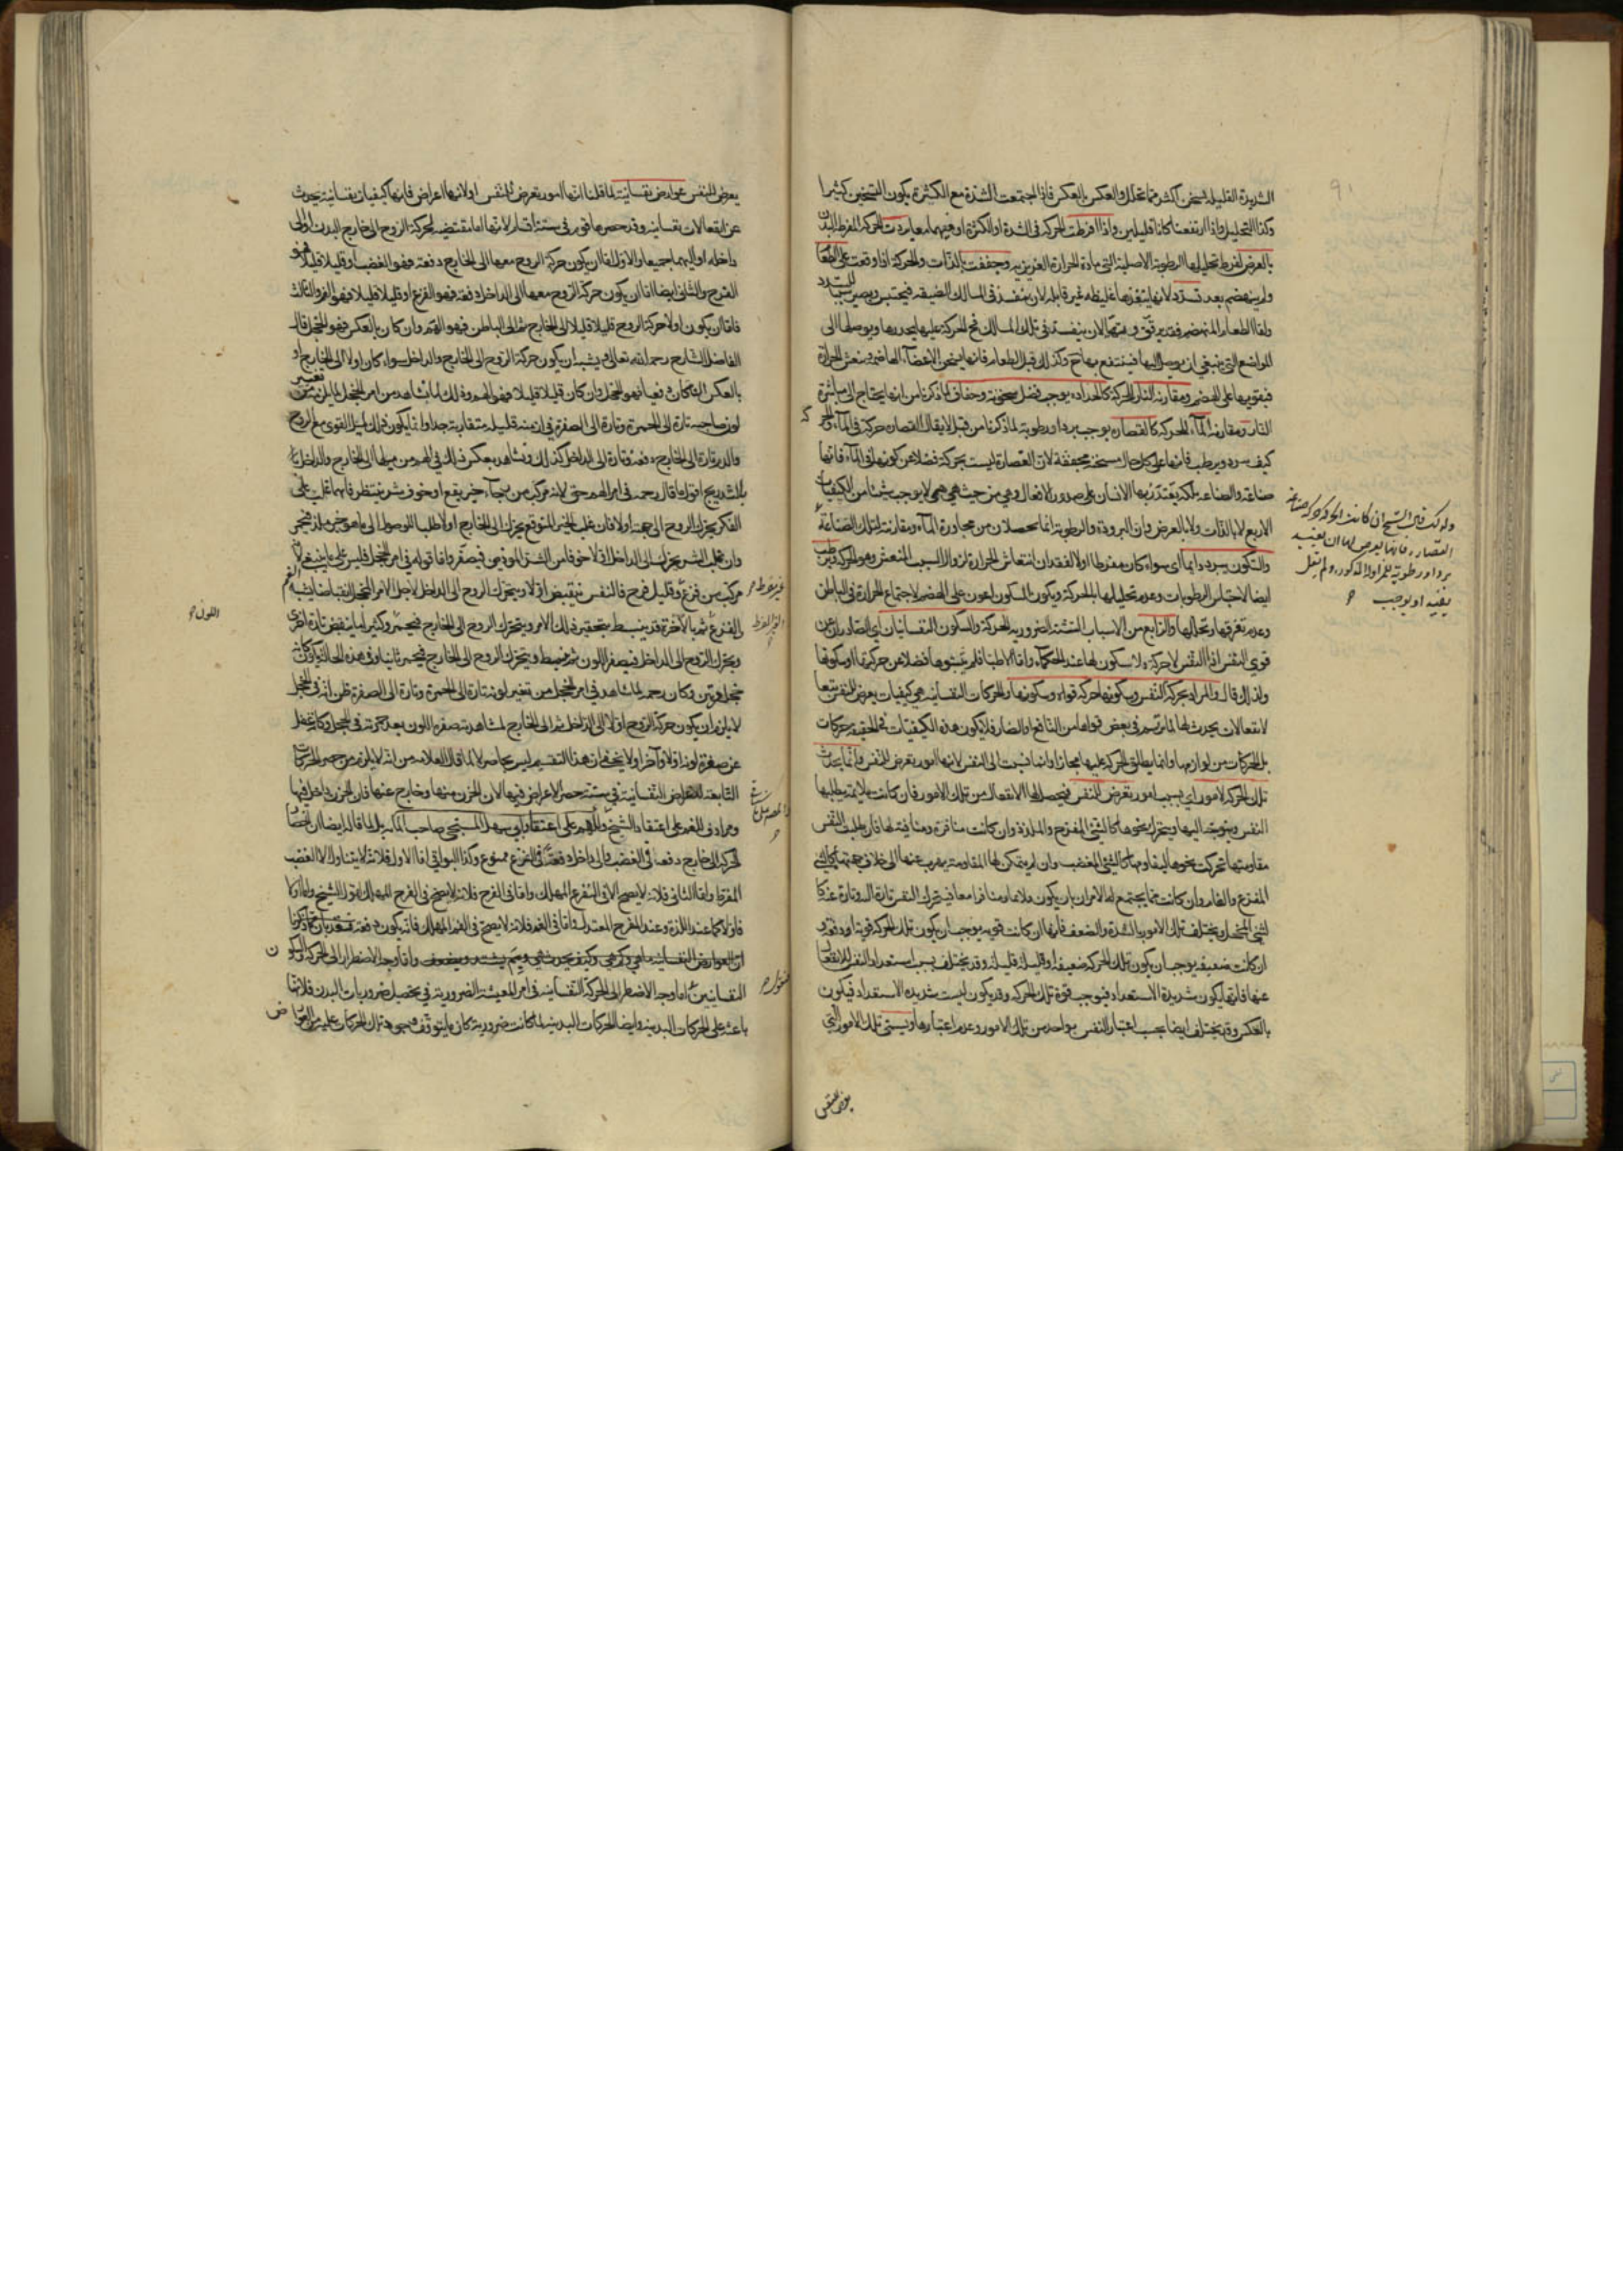 الشديدة القليلة تسخن اكثر مما تحلل والعكس بالعكس فاذا اجتمعت الشدة مع الكثرة يكون التسخين كثيرا
وكذا التحليل واذا ارتفعتا كانا قليلين واذا افرطت الحركة فى الشدة او الكثرة او فيهما معا بردت الحركة المفرطة البدن
بالعرض لفرط تحليلها الرطوبة الاصلية التى مادة الحرارة الغريزية وجففت بالذات والحركة اذا وقعت على الطعام
ولم ينهضم بعد تسدد لانها ينفذها غليظة غير قابلة لان ينفذ فى المسالك الضيقة فيحتبس ويصير سببا للسدد
واما الطعام المنهضم فقد يرقق وتهيأ لان ينفذ فى تلك المسالك فح الحركة عليها يحدرها ويوصلها الى
المواضع التى ينبغى ان يوصل اليها فينتفع بها ح وكذلك قبل الطعام فانها يسخن الاعضاء الهاضمة وينعش الحرارة
فيقويها على الهضم ومقارنة النار للحركة كالحدادة يوجب فضل سخونة وجفاف لما ذكرنا من انها يحتاج الى مباشرة
النار ومقارنة الماء للحركة كالقصارة يوجب بردا ورطوبة لما ذكرنا من قبل لا يقال القصارة حركة فى الماء والحركة
كيف يبرد ويرطب فانها على كل حال مسخنة مجففة لان القصارة ليست بحركة فضلا عن كونها فى الماء فانها
صناعة والصناعة ملكة يقتدر بها الانسان على صدور الافعال وهى من حيث هى هى لا يوجب شيئا من الكيفيات
الاربع لا بالذات ولا بالعرض فان البرودة والرطوبة انما تحصلان من مجاورة الماء ومقارنته لتلك الصناعة
والسكون يبرد دائما اى سواء كان مفرطا او لا لفقدان انتعاش الحرارة لزوال السبب المنعش وهو الحركة ويرطب
ايضا لاحتباس الرطوبات وعدم تحليلها بالحركة ويكون السكون اعون على الهضم لاجتماع الحرارة فى الباطن
وعدم تفرقها وتحللها والرابع من الاسباب الستة الضرورية الحركة والسكون النفسانيان اى الصادران عن
قوى النفس اذ النفس لا حركة ولا سكون لها عند الحكماء واما الاطباء فلم يثبتوها فضلا عن حركتها او سكونها
ولذلك قال والمراد بحركة النفس وسكونها حركة قواه وسكونها والحركات النفسانية هى كيفيات يعرض للنفس تبعا
لانفعالات يحدث لها لما يرتسم فى بعض قواها من النافع او الضار فلا يكون هذه الكيفيات فى الحقيقة حركات
بل الحركات من لوازمها وانما يطلق الحركة عليها مجازا وانما نسبت الى النفس لانها امور يعرض للنفس وانما يحدث
تلك الحركة لامور اى بسبب امور يعرض للنفس فيحصل لها الانفعال من تلك الامور فان كانت ملائمة يطلبها
النفس ويتوجه اليها ويتحرك نحوها كالشئ المفرح والملذة وان كانت منافرة ومنافية لها فان طلبت النفس
مقاومتها تحركت نحوها ليقاومها كالشئ المغضب وان لم يتمكن لها المقاومة يهرب عنها الى خلاف جهتها كالشئ
المفزع والغام وان كانت مما يجتمع له الامران بان يكون ملائما ومنافرا معا فيتحرك النفس تارة اليه وتارة عنه كا
لشئ المخجل ويختلف تلك الامور بالشدة والضعف فانها ان كانت قوية يوجب ان يكون تلك الحركة قوية او دفعة و
ان كانت ضعيفة يوجب ان يكون تلك الحركة ضعيفة او قليلة قليلة وقد يختلف بسبب استعداد النفس للانفعال
عنها فانها يكون شديدة الاستعداد فيوجب قوة تلك الحركة وقد يكون ليست شديدة الاستعداد فيكون
بالعكس وقد يختلف ايضا بحسب اعتبار النفس بواحد من تلك الامور وعدم اعتبارها ويسمى تلك الامور التى
يعرض للنفس
ولذلك قال الشيخ ان كانت الحركة حركة صناعة
القصارة فانها يعرض لها ان يفيد
بردا ورطوبة للمزاولة المذكورة ولم يقل
يفيد او يوجب
يعرض للنفس عوارض نفسانية لما قلنا انها امور يعرض للنفس او لانها اعراض فانها كيفيات نفسانية يحدث
عن انفعالات نفسانية وقد حصرها قوم فى ستة اقسام لانها اما مقتضية لحركة الروح الى خارج البدن او الى
داخله او اليهما جميعا والاول اما ان يكون حركة الروح معها الى الخارج دفعة فهو الغضب او قليلا قليلا فهو
الفرح والثانى ايضا اما ان يكون حركة الروح معها الى الداخل دفعة فهو الفزع او قليلا قليلا فهو الغم والثالث
فاما ان يكون اولا حركة الروح قليلا قليلا الى الخارج ثم الى الباطن فهو الهم وان كان بالعكس فهو الخجل قال
الفاضل الشارح رحمه الله تعالى ويشبه ان يكون حركة الروح الى الخارج والداخل سواء كان اولا الى الخارج او
بالعكس ان كان دفعيا فهو الخجل وان كان قليلا قليلا فهو الهم وذلك لما نشاهد من امر الخجل
لون صاحبه تارة الى الحمرة وتارة الى الصفرة فى ازمنة قليلة متقاربة جدا وانما يكون ذلك لميل القوى مع الروح
والدم تارة الى الخارج دفعة وتارة الى الداخل كذلك ونشاهد بعكس ذلك فى الهم من ميلها الى الخارج والداخل
بالتدريج اقول ما قال رحمه فى امر الهم حق لانه مركب من رجاء خير يقع او خوف شر ينتظر فايهما غلب على
الفكر يحرك الروح الى جهته اولا فان غلب الخير المتوقع يحرك الى الخارج اولا طلبا للوصول الى ما هو خير
وان غلب الشر يحرك الى الداخل اولا خوفا من الشر واما قوله فى امر الخجل فليس على ما ينبغى
مركب من فزع وقليل فرح فالنفس ينقبض اولا ويتحرك الروح الى الداخل لاجل الامر المخجل انقباضا
الفزع ثم بالآخرة قد ينبسط بتحقير ذلك الامر ويتحرك الروح الى الخارج فيحمر وكثيرا ما ينقبض تارة اخرى
ويحرك الروح الى الداخل فيصفر اللون ثم ينبسط ويتحرك الروح الى الخارج فيحمر ثانيا وفى هذه الحالة يكون كانه
خجل مرتين وكان رحمه لما شاهد فى امر الخجل من تغير لونه تارة الى الحمرة وتارة الى الصفرة ظن انه فى الخجل
لا يلزم ان يكون حركة الروح اولا الى الداخل ثم الى الخارج لمشاهدته صفرة اللون بعد حمرته فى الخجل وكانه غفل
عن صفرة لونه اولا وآخرا ولا يخفى ان هذا التقسيم ليس بحاصر لا لما قال العلامة من انه لا يلزم من حصر الحركات
التابعة للاعراض النفسانية فى ستة حصر الاعراض فيها لان الحزن منها وخارج عنها فان الحزن داخل فيها
ومرادف للغم على اعتقاد الشيخ وللهم على اعتقاد ابى سهل المسيحى صاحب المائة بل لما قال ايضا ان
الحركة الى خارج دفعة فى الغضب والى داخل دفعة فى الفزع ممنوع وكذا البواقى اما الاول فلانه لا يتناول الا الغضب
المفرط واما الثانى فلانه لا يصح الا فى الفزع المهلك واما فى الفرح فلانه لا يصح فى الفرح المهلك لقول الشيخ
فاولا كما عند اللذة وعند المفرح المعتدل واما فى الغم فلانه لا يصح فى الغم المهلك فانه يكون دفعة
ان العوارض النفسانية ما هى وكم هى وكيف يحدث هى وبم يشتد ويضعف واما وجه الاضطرار الى الحركة والسكون
النفسانيين اما وجه الاضطرار الى الحركة النفسانية فى امر المعيشة الضرورية فى تحصيل ضروريات البدن فلانها
باعثة على الحركات البدنية وايضا الحركات البدنية لما كانت ضرورية كان ما يتوقف
اللون